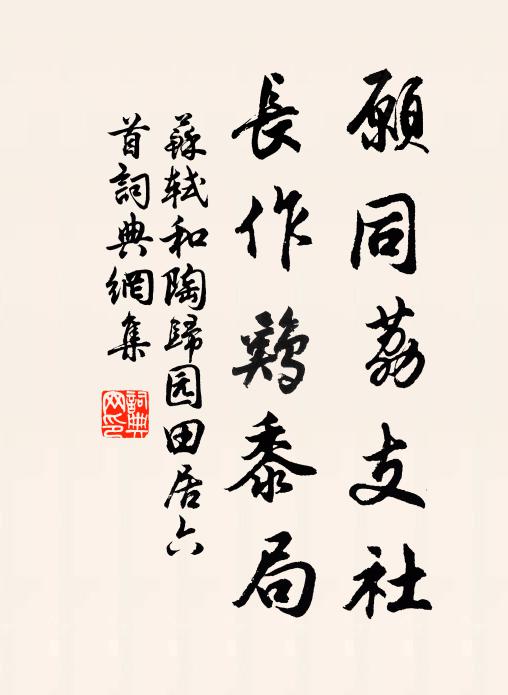 願同荔支社
長作鷄黍局
蘇軾和陶歸园田居六
首詞典網集
詞典网印